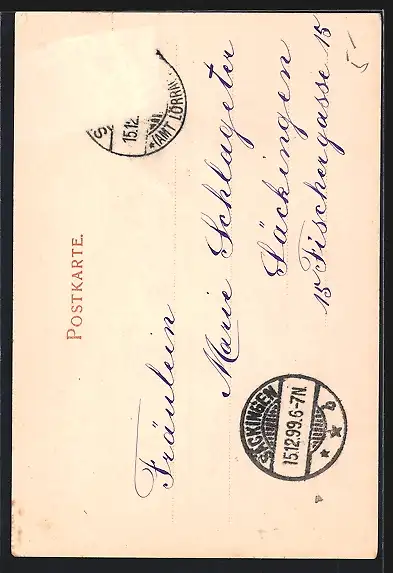 POSTKARTE.
S
15.12.
(AMT LÖRR
Fräulein
Marie Schlageter
Säckingen
15 Fischergasse 15
SÄCKINGEN
15.12.99.6-7N.
* * b